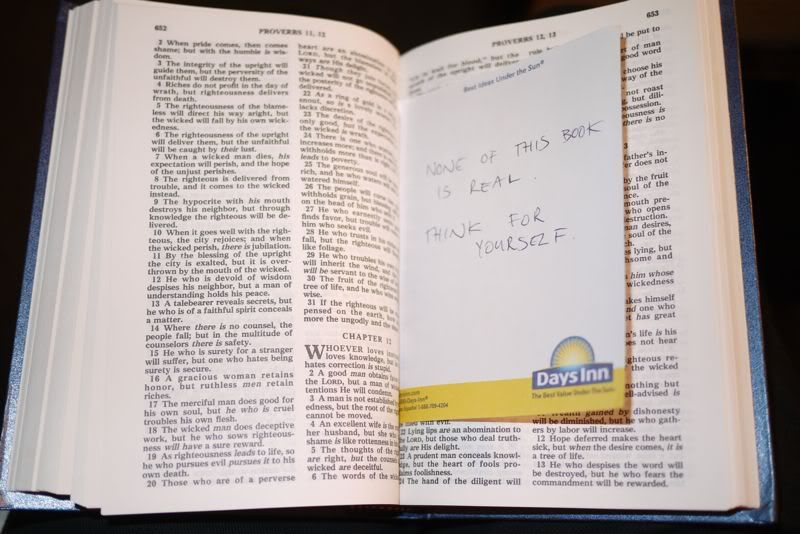 652
PROVERBS 11, 12
2 When pride comes, then comes
shame; but with the humble is wis-
dom.
3 The integrity of the upright will
guide them, but the perversity of the
unfaithful will destroy them.
4 Riches do not profit in the day of
wrath, but righteousness delivers
from death.
5 The righteousness of the blame-
less will direct his way aright, but
the wicked will fall by his own wick-
edness.
6 The righteousness of the upright
will deliver them, but the unfaithful
will be caught by their lust.
7 When a wicked man dies, his
expectation will perish, and the hope
of the unjust perishes.
8 The righteous is delivered from
trouble, and it comes to the wicked
instead.
9 The hypocrite with his mouth
destroys his neighbor, but through
knowledge the righteous will be de-
livered.
10 When it goes well with the right-
eous, the city rejoices; and when
the wicked perish, there is jubilation.
11 By the blessing of the upright
the city is exalted, but it is over-
thrown by the mouth of the wicked.
12 He who is devoid of wisdom
despises his neighbor, but a man of
understanding holds his peace.
13 A talebearer reveals secrets, but
he who is of a faithful spirit conceals
a matter.
14 Where there is no counsel, the
people fall; but in the multitude of
counselors there is safety.
15 He who is surety for a stranger
will suffer, but one who hates being
surety is secure.
16 A gracious woman retains
honor, but ruthless men retain
riches.
17 The merciful man does good for
his own soul, but he who is cruel
troubles his own flesh.
18 The wicked man does deceptive
work, but he who sows righteous-
ness will have a sure reward.
19 As righteousness leads to life, so
he who pursues evil pursues it to his
own death.
20 Those who are of a perverse
heart are an
LORD, but the
ways are His
21 Though they
wicked will not go
the posterity of the
delivered.
22 As a ring of gold in
snout, so is a lovely
lacks discretion.
23 The desire of the
only good, but the
the wicked is wrath.
24 There is one who
increases more; and there
withholds more than is
leads to poverty.
25 The generous soul will
rich, and he who waters will
watered himself.
26 The people will curse
withholds grain, but
on the head of him who
27 He who earnestly
finds favor, but trouble will
him who seeks evil.
28 He who trusts in his
fall, but the righteous will
like foliage.
29 He who troubles his
will inherit the wind, and the
will be servant to the wise of
30 The fruit of the
tree of life, and he who
wise.
31 If the righteous will be
pensed on the earth, how
more the ungodly and the
CHAPTER 12
WHOEVER loves
loves knowledge, but
hates correction is stupid.
2 A good man obtains
the LORD, but a man of
tentions He will condemn.
3 A man is not established
edness, but the root of the
cannot be moved.
4 An excellent wife is the
her husband, but she who
shame is like rottenness in
5 The thoughts of the
are right, but the counsels
wicked are deceitful.
6 The words of the
PROVERBS 12, 13
653
Best Ideas Under the Sun®
NONE OF THIS BOOK
IS REAL.
THINK FOR
YOURSELF.
Days Inn®
The Best Value Under the Sun
22 Lying lips are an abomination to
the LORD, but those who deal truth-
fully are His delight.
23 A prudent man conceals knowl-
edge, but the heart of fools pro-
claims foolishness.
24 The hand of the diligent will
be put to
of man
good word
choose his
way of the
not roast
but dili-
possession.
there is no
father's in-
does not
by the fruit
soul of the
who opens
destruction.
man desires,
soul of the
lying, but
him whose
wickedness
makes himself
one who
has great
life is his
does not hear
nothing but
well-advised is
11 Wealth gained by dishonesty
will be diminished, but he who gath-
ers by labor will increase.
12 Hope deferred makes the heart
sick, but when the desire comes, it is
a tree of life.
13 He who despises the word will
be destroyed, but he who fears the
commandment will be rewarded.